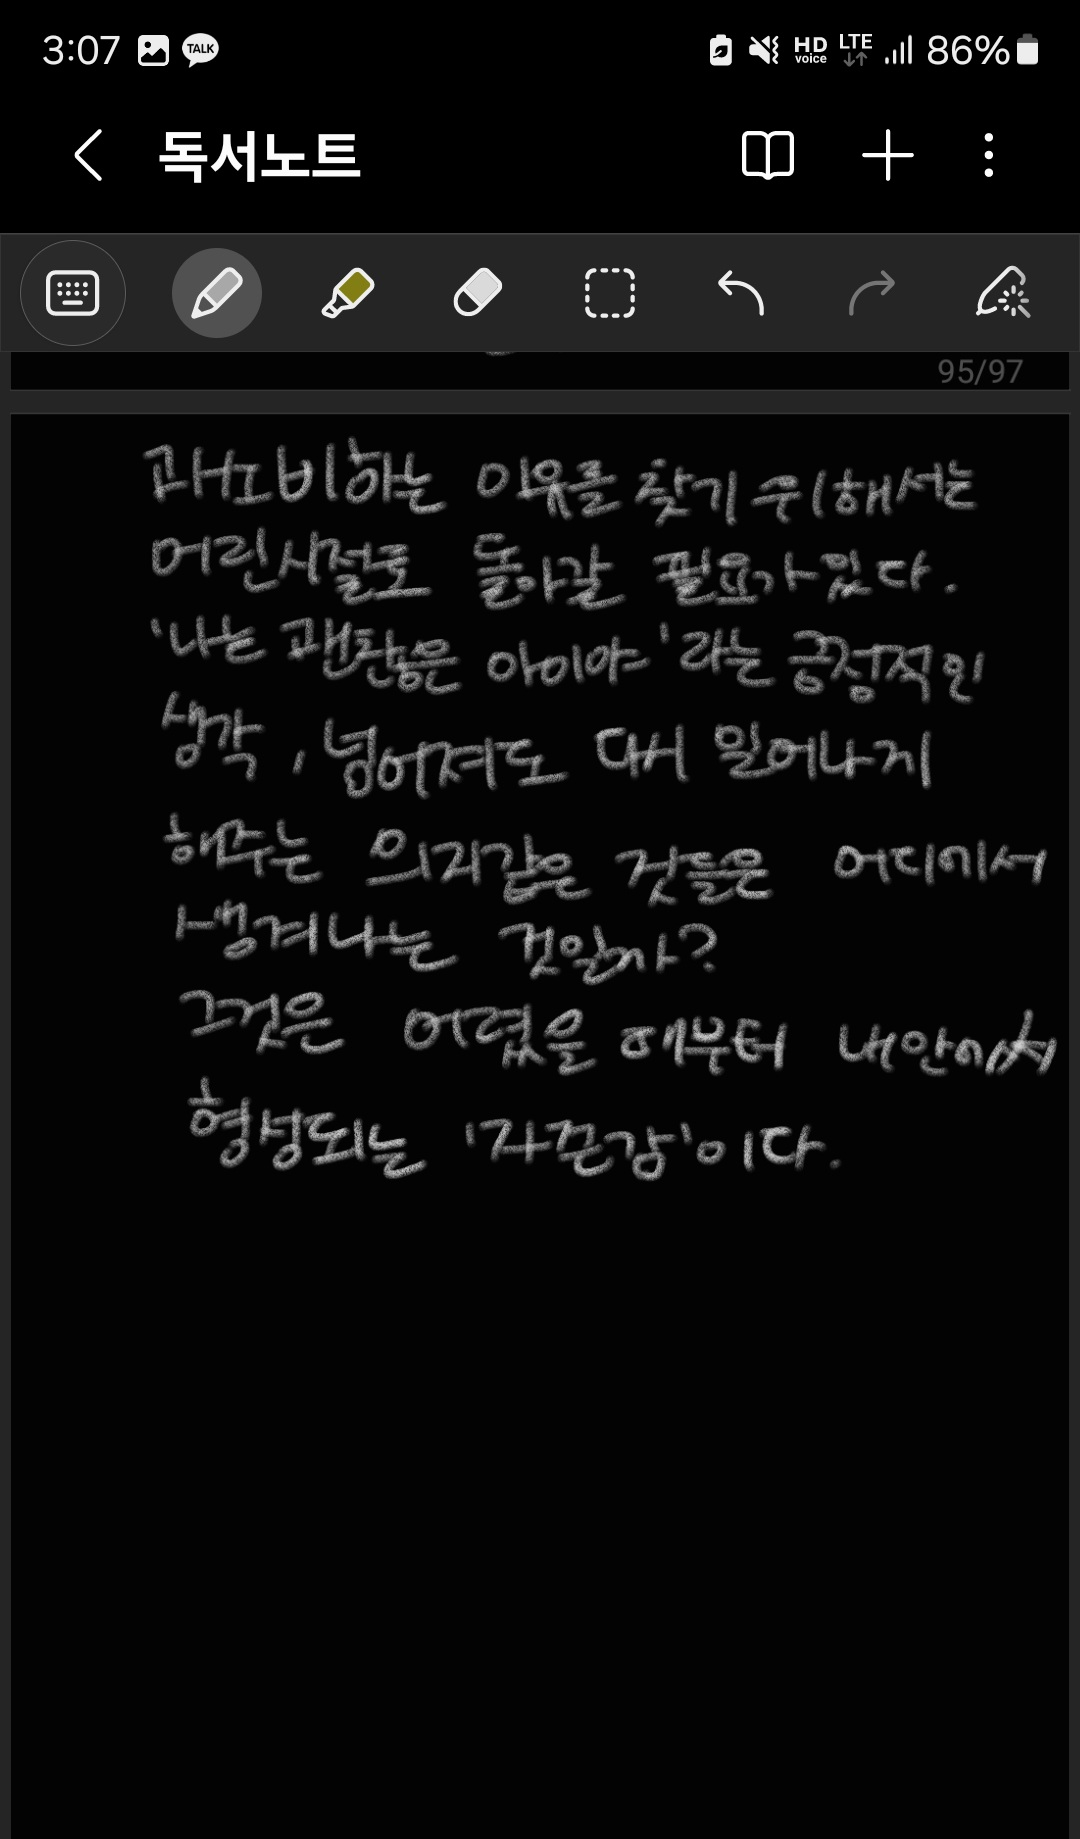 3:07 TALK HD voice LTE 86%
독서노트
95/97
과소비하는 이유를 찾기 위해서는
어린시절로 돌아갈 필요가 있다.
'나는 괜찮은 아이야'라는 긍정적인
생각, 넘어져도 다시 일어나게
해주는 의지같은 것들은 어디에서
생겨나는 것일까?
그것은 어렸을 때부터 내안에서
형성되는 '자존감'이다.